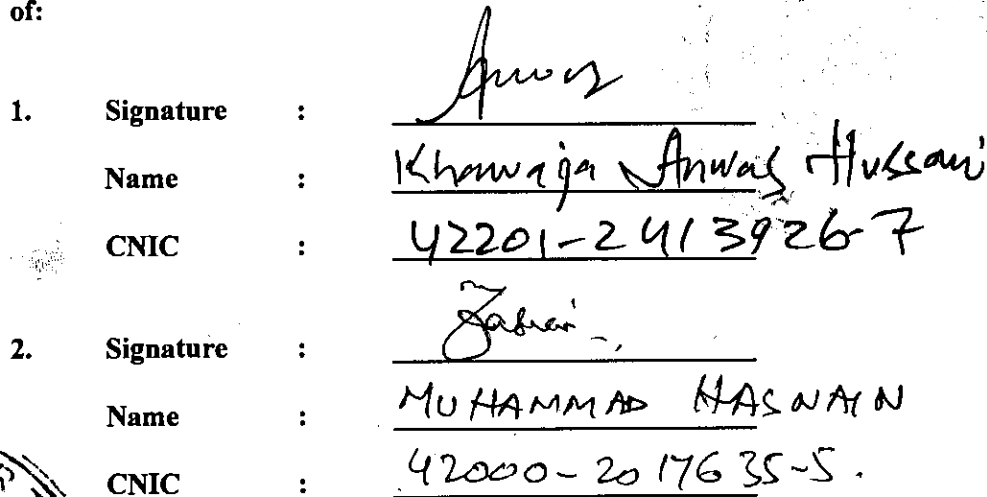 of:
1. Signature : Anwar
Name : Khawaja Anwar Hussain
CNIC : 42201-2413926-7
2. Signature :
Name : MUHAMMAD HASNAIN
CNIC : 42000-2017635-5.